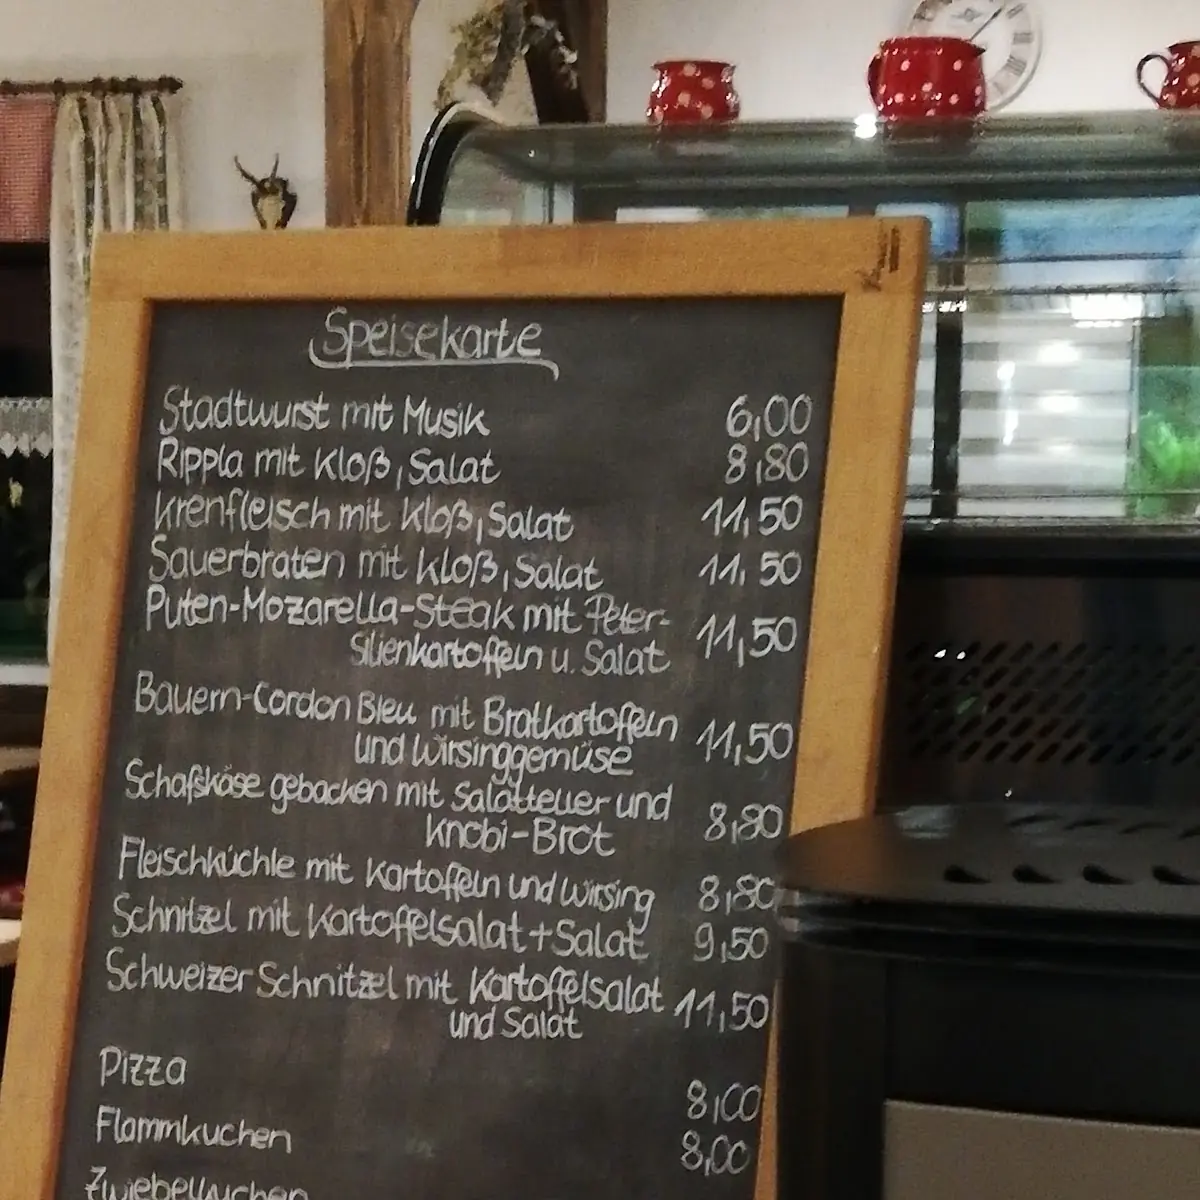 Speisekarte
Stadtwurst mit Musik 6,00
Rippla mit Kloß, Salat 8,80
Krenfleisch mit Kloß, Salat 11,50
Sauerbraten mit Kloß, Salat 11,50
Puten-Mozarella-Steak mit Peter-
silienkartoffeln u. Salat 11,50
Bauern-Cordon Bleu mit Bratkartoffeln
und Wirsinggemüse 11,50
Schafskäse gebacken mit Salatteller und
Knobi-Brot 8,80
Fleischküchle mit Kartoffeln und Wirsing 8,80
Schnitzel mit Kartoffelsalat + Salat 9,50
Schweizer Schnitzel mit Kartoffelsalat
und Salat 11,50
Pizza 8,00
Flammkuchen 8,00
Zwiebelkuchen